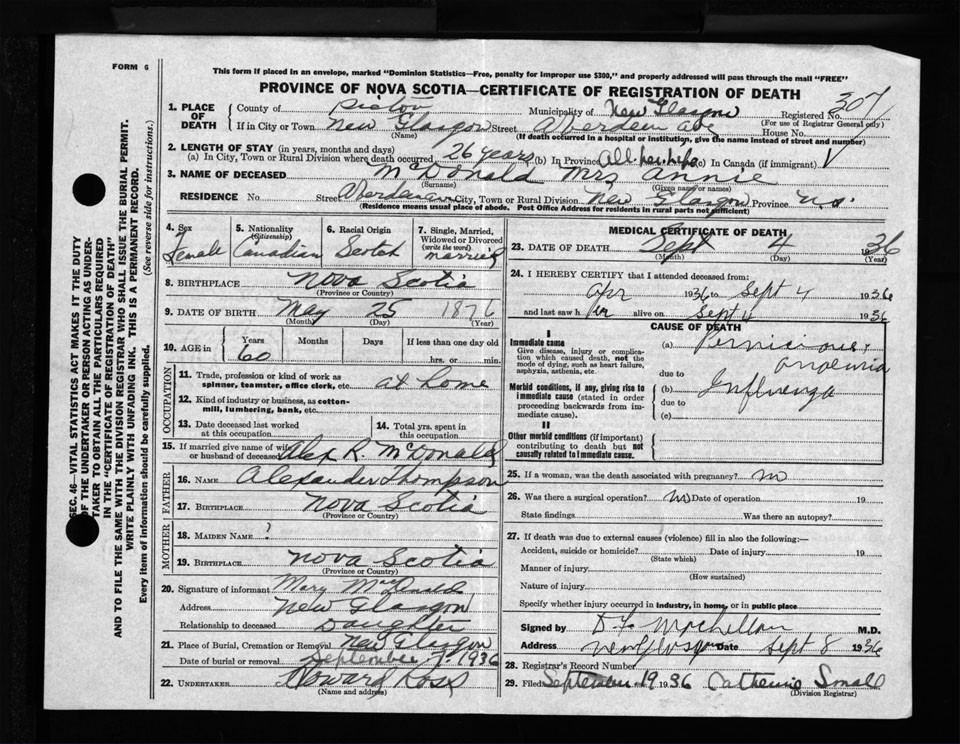 FORM 6
This form if placed in an envelope, marked "Dominion Statistics—Free, penalty for improper use $300," and properly addressed will pass through the mail "FREE"
PROVINCE OF NOVA SCOTIA—CERTIFICATE OF REGISTRATION OF DEATH
1. PLACE OF DEATH
County of Pictou Municipality of New Glasgow Registered No. 307
(For use of Registrar General only)
If in City or Town New Glasgow Street Aberdeen Ave House No.
(Name) (If death occurred in hospital or institution, give the name instead of street and number)
2. LENGTH OF STAY (in years, months and days)
(a) In City, Town or Rural Division where death occurred 26 years (b) In Province All her life (c) In Canada (if immigrant)
3. NAME OF DECEASED McDonald Mrs Annie
(Surname) (Given name or names)
RESIDENCE No. Street Aberdeen City, Town or Rural Division New Glasgow Province N.S.
(Residence means usual place of abode. Post Office Address for residents in rural parts not sufficient)
4. Sex Female
5. Nationality (Citizenship) Canadian
6. Racial Origin Scotch
7. Single, Married, Widowed or Divorced (write the word) married
8. BIRTHPLACE Nova Scotia
(Province or Country)
9. DATE OF BIRTH May 25 1876
(Month) (Day) (Year)
10. AGE in Years Months Days If less than one day old
60 hrs. or min.
OCCUPATION
11. Trade, profession or kind of work as spinner, teamster, office clerk, etc. at home
12. Kind of industry or business, as cotton-mill, lumbering, bank, etc.
13. Date deceased last worked at this occupation
14. Total yrs. spent in this occupation
15. If married give name of wife or husband of deceased Alex R. McDonald
FATHER
16. NAME Alexander Thompson
17. BIRTHPLACE Nova Scotia
(Province or Country)
MOTHER
18. MAIDEN NAME ?
19. BIRTHPLACE Nova Scotia
(Province or Country)
20. Signature of informant Mary
Address New Glasgow
Relationship to deceased Daughter
21. Place of Burial, Cremation or Removal New Glasgow
Date of burial or removal September 7, 1936
22. UNDERTAKER Howard Ross
(Name and address)
MEDICAL CERTIFICATE OF DEATH
23. DATE OF DEATH Sept 4 1936
(Month) (Day) (Year)
24. I HEREBY CERTIFY that I attended deceased from:
Apr 1936 to Sept 4 1936
and last saw her alive on Sept 4 1936
CAUSE OF DEATH
I
Immediate cause
Give disease, injury or complication which caused death, not the mode of dying, such as heart failure, asphyxia, asthenia, etc.
(a) Pernicious anoemia
due to
Morbid conditions, if any, giving rise to immediate cause (stated in order proceeding backwards from immediate cause).
(b) Influenza
due to
(c)
II
Other morbid conditions (if important) contributing to death but not causally related to immediate cause.
25. If a woman, was the death associated with pregnancy? no
26. Was there a surgical operation? no Date of operation 19
State findings Was there an autopsy?
27. If death was due to external causes (violence) fill in also the following:—
Accident, suicide or homicide? Date of injury 19
(State which)
Manner of injury
(How sustained)
Nature of injury
Specify whether injury occurred in industry, in home, or in public place
Signed by M.D.
Address New Glasgow Date Sept 8 1936
28. Registrar's Record Number
29. Filed September 19 1936 Catherine Small
(Division Registrar)
SEC. 46—VITAL STATISTICS ACT MAKES IT THE DUTY
OF THE UNDERTAKER OR PERSON ACTING AS UNDER-
TAKER TO OBTAIN ALL THE PARTICULARS REQUIRED
IN THE "CERTIFICATE OF REGISTRATION OF DEATH"
AND TO FILE THE SAME WITH THE DIVISION REGISTRAR WHO SHALL ISSUE THE BURIAL PERMIT.
WRITE PLAINLY WITH UNFADING INK. THIS IS A PERMANENT RECORD.
Every item of information should be carefully supplied. (See reverse side for instructions.)